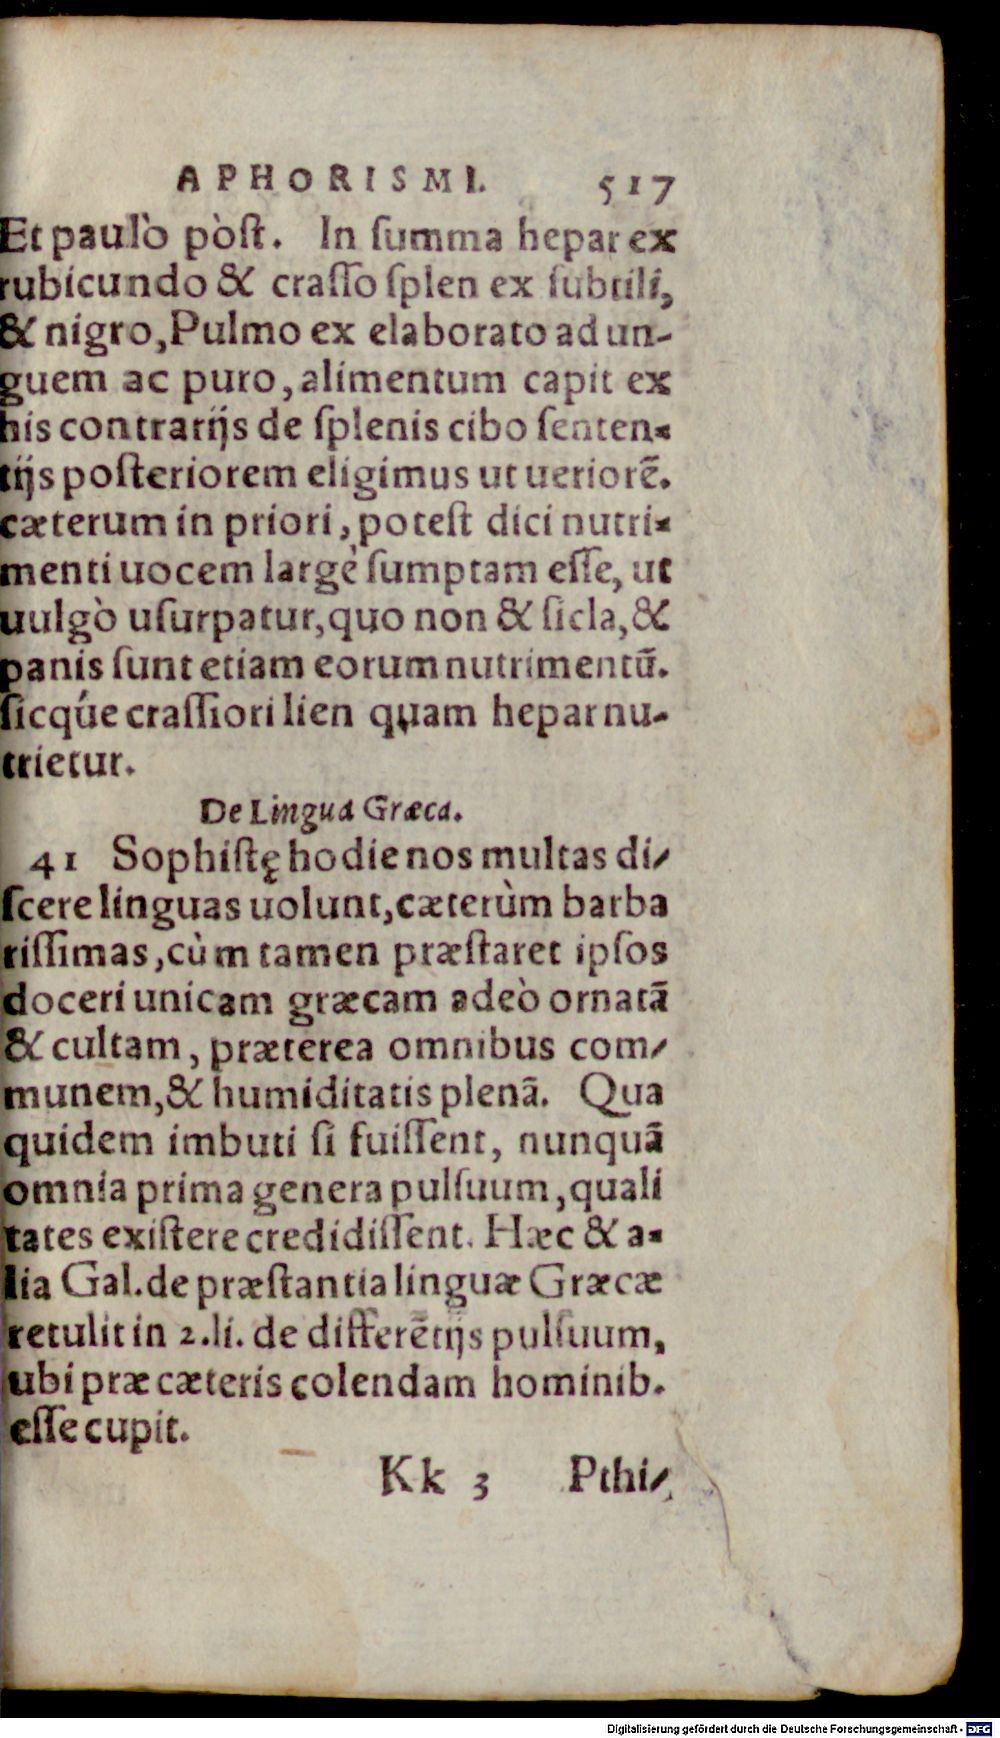 APHORISMI. 517
Et paulò pòst. In summa hepar ex
rubicundo & crasso splen ex subtili,
& nigro, Pulmo ex elaborato ad un-
guem ac puro, alimentum capit ex
his contrarijs de splenis cibo senten-
tijs posteriorem eligimus ut ueriorẽ.
cæterum in priori, potest dici nutri-
menti uocem largè sumptam esse, ut
uulgò usurpatur, quo non & sicla, &
panis sunt etiam eorum nutrimentũ.
sicq́ue crassiori lien quam hepar nu-
trietur.
De Lingua Græca.
41 Sophistę hodie nos multas di-
scere linguas uolunt, cæterùm barba
rissimas, cùm tamen præstaret ipsos
doceri unicam græcam adeò ornatã
& cultam, præterea omnibus com-
munem, & humiditatis plenã. Qua
quidem imbuti si fuissent, nunquã
omnia prima genera pulsuum, quali
tates existere credidissent. Hæc & a-
lia Gal. de præstantia linguæ Græcæ
retulit in 2. li. de differẽtijs pulsuum,
ubi præ cæteris colendam hominib.
esse cupit.
Kk 3 Pthi-
Digitalisierung gefördert durch die Deutsche Forschungsgemeinschaft - DFG